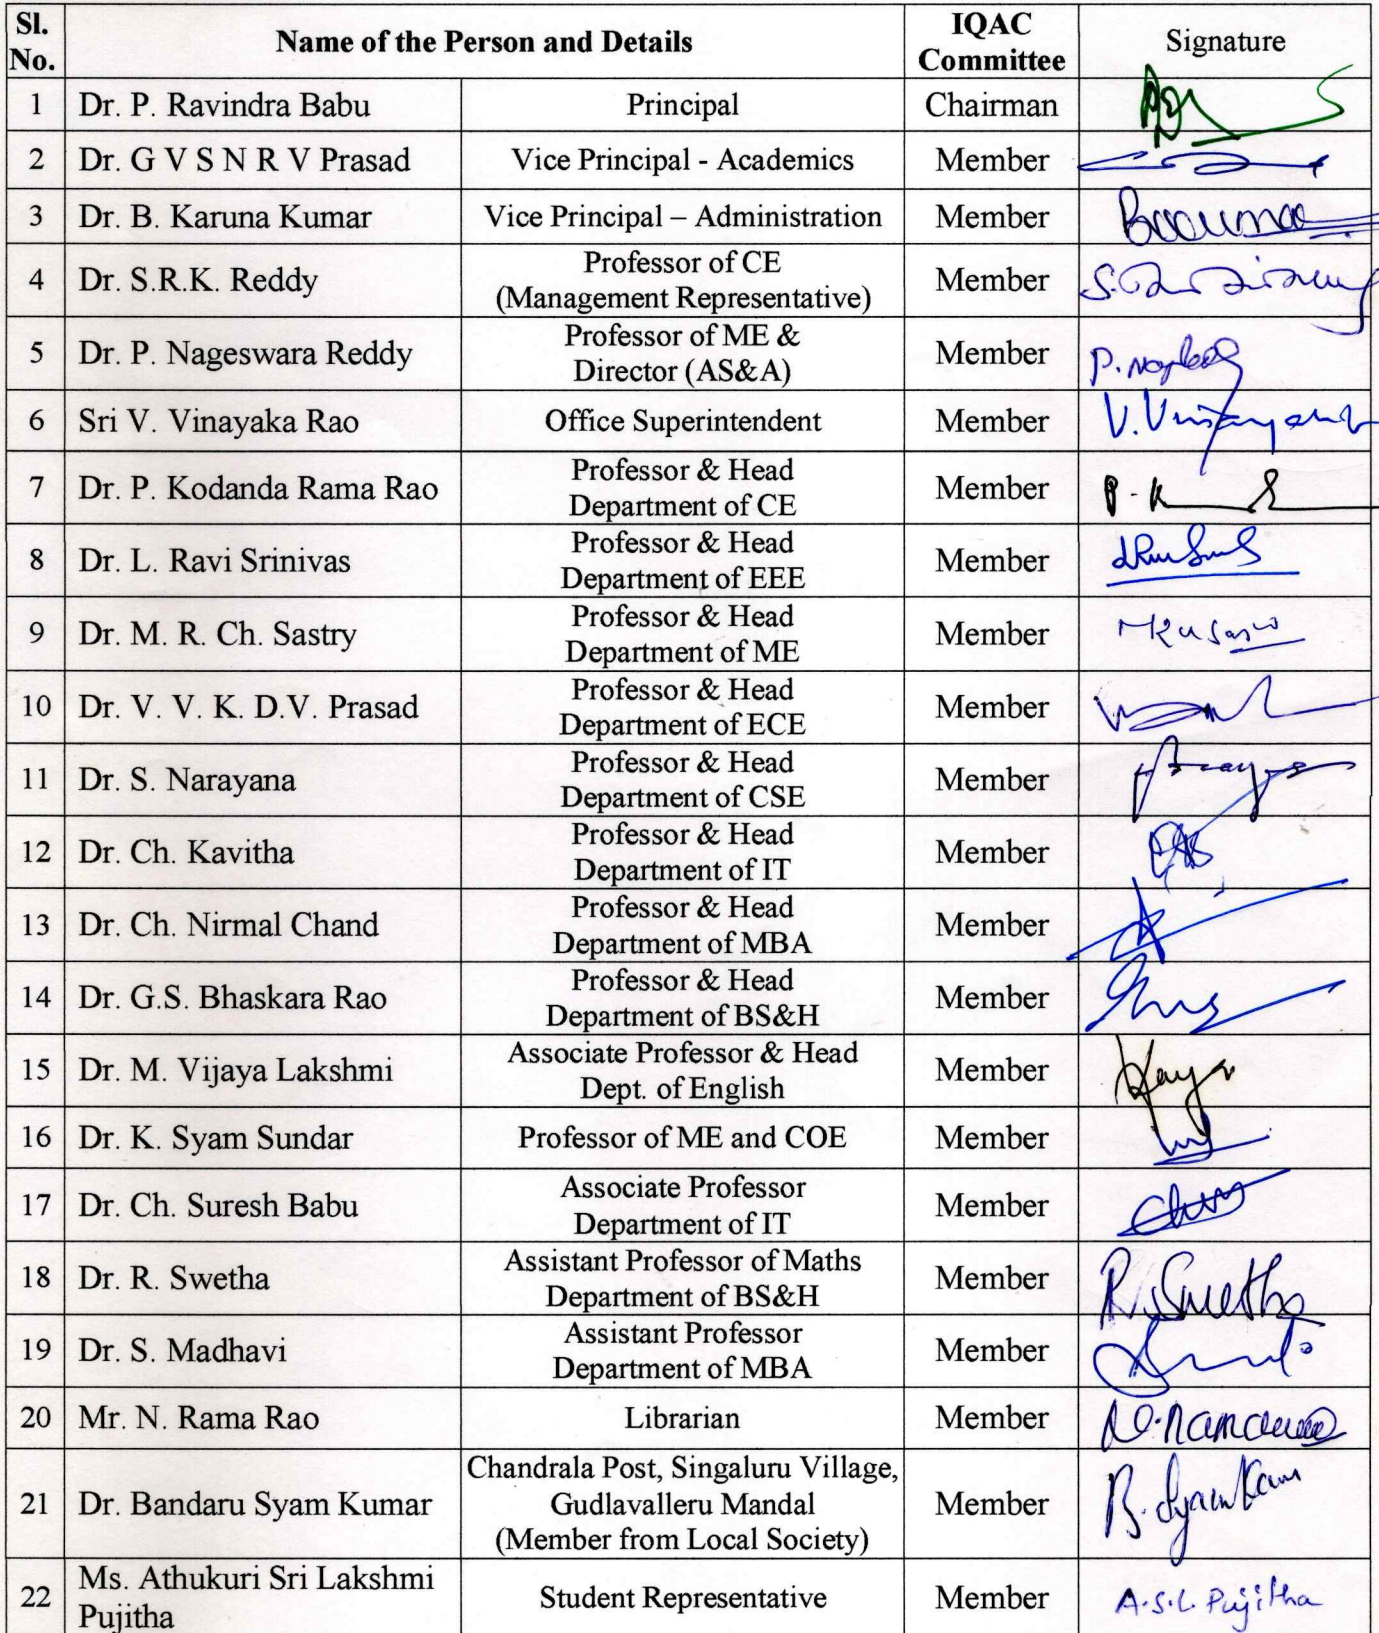 Sl. No. Name of the Person and Details IQAC Committee Signature
1 Dr. P. Ravindra Babu Principal Chairman
2 Dr. G V S N R V Prasad Vice Principal - Academics Member
3 Dr. B. Karuna Kumar Vice Principal – Administration Member
4 Dr. S.R.K. Reddy Professor of CE (Management Representative) Member
5 Dr. P. Nageswara Reddy Professor of ME & Director (AS&A) Member
6 Sri V. Vinayaka Rao Office Superintendent Member
7 Dr. P. Kodanda Rama Rao Professor & Head Department of CE Member
8 Dr. L. Ravi Srinivas Professor & Head Department of EEE Member
9 Dr. M. R. Ch. Sastry Professor & Head Department of ME Member
10 Dr. V. V. K. D.V. Prasad Professor & Head Department of ECE Member
11 Dr. S. Narayana Professor & Head Department of CSE Member
12 Dr. Ch. Kavitha Professor & Head Department of IT Member
13 Dr. Ch. Nirmal Chand Professor & Head Department of MBA Member
14 Dr. G.S. Bhaskara Rao Professor & Head Department of BS&H Member
15 Dr. M. Vijaya Lakshmi Associate Professor & Head Dept. of English Member
16 Dr. K. Syam Sundar Professor of ME and COE Member
17 Dr. Ch. Suresh Babu Associate Professor Department of IT Member
18 Dr. R. Swetha Assistant Professor of Maths Department of BS&H Member R. Swetha
19 Dr. S. Madhavi Assistant Professor Department of MBA Member
20 Mr. N. Rama Rao Librarian Member
21 Dr. Bandaru Syam Kumar Chandrala Post, Singaluru Village, Gudlavalleru Mandal (Member from Local Society) Member
22 Ms. Athukuri Sri Lakshmi Pujitha Student Representative Member A.S.L. Pujitha